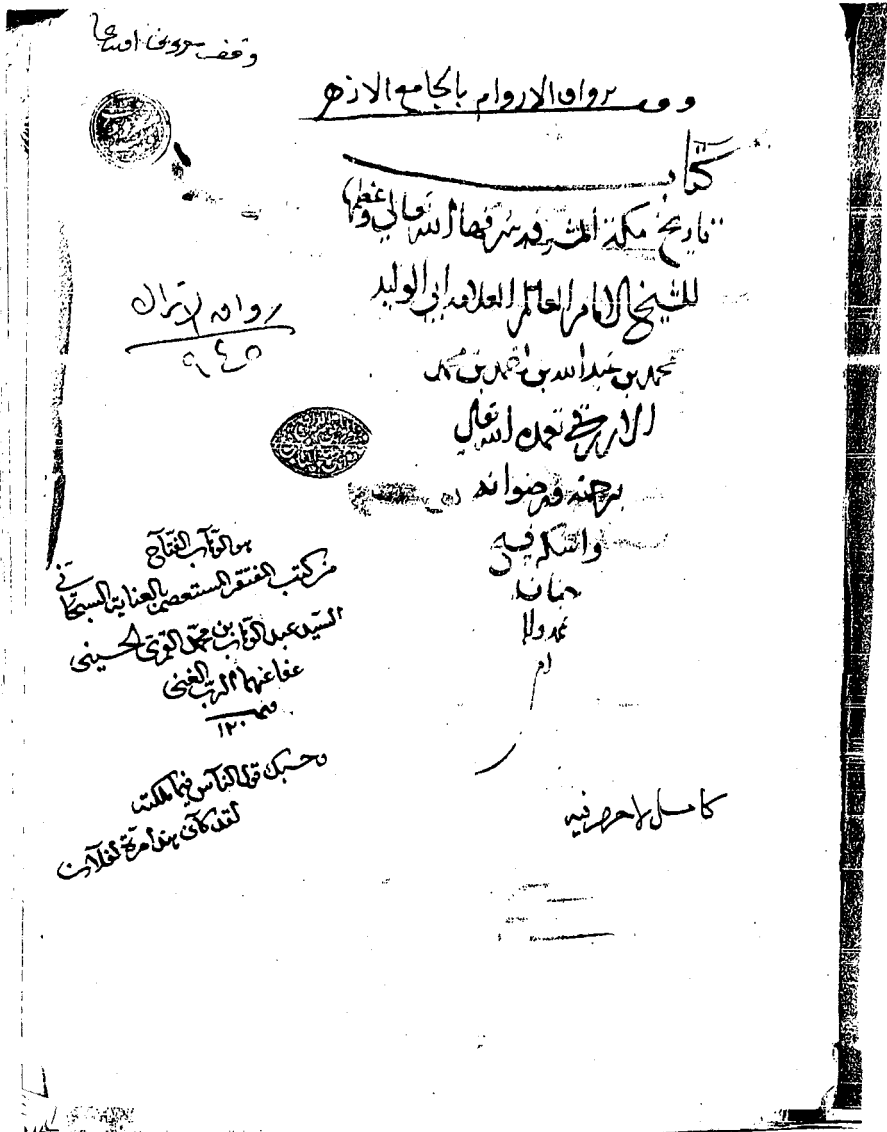 وقف
وقف برواق الاروام بالجامع الازهر
كتاب
تاريخ مكة المشرفه شرفها الله تعالى وعظمها
للشيخ الامام العالم العلامه ابي الوليد
محمد بن عبد الله بن احمد بن محمد
الازرقي تغمده الله تعالى
برحمته ورضوانه
واسكنه فسيح
جنانه
محمد واله
ام
رواق الاتراك
٩٤٥
هو الوهاب الفتاح
من كتب الفقير المستعصم بالعناية السبحاني
السيد عبد الوهاب بن محمد الحسيني
عفا عنهما الرب الغني
وحسبك قول الناس فيما ملكته
لقد كان هذا مرة لفلان
كامل لا خرم فيه